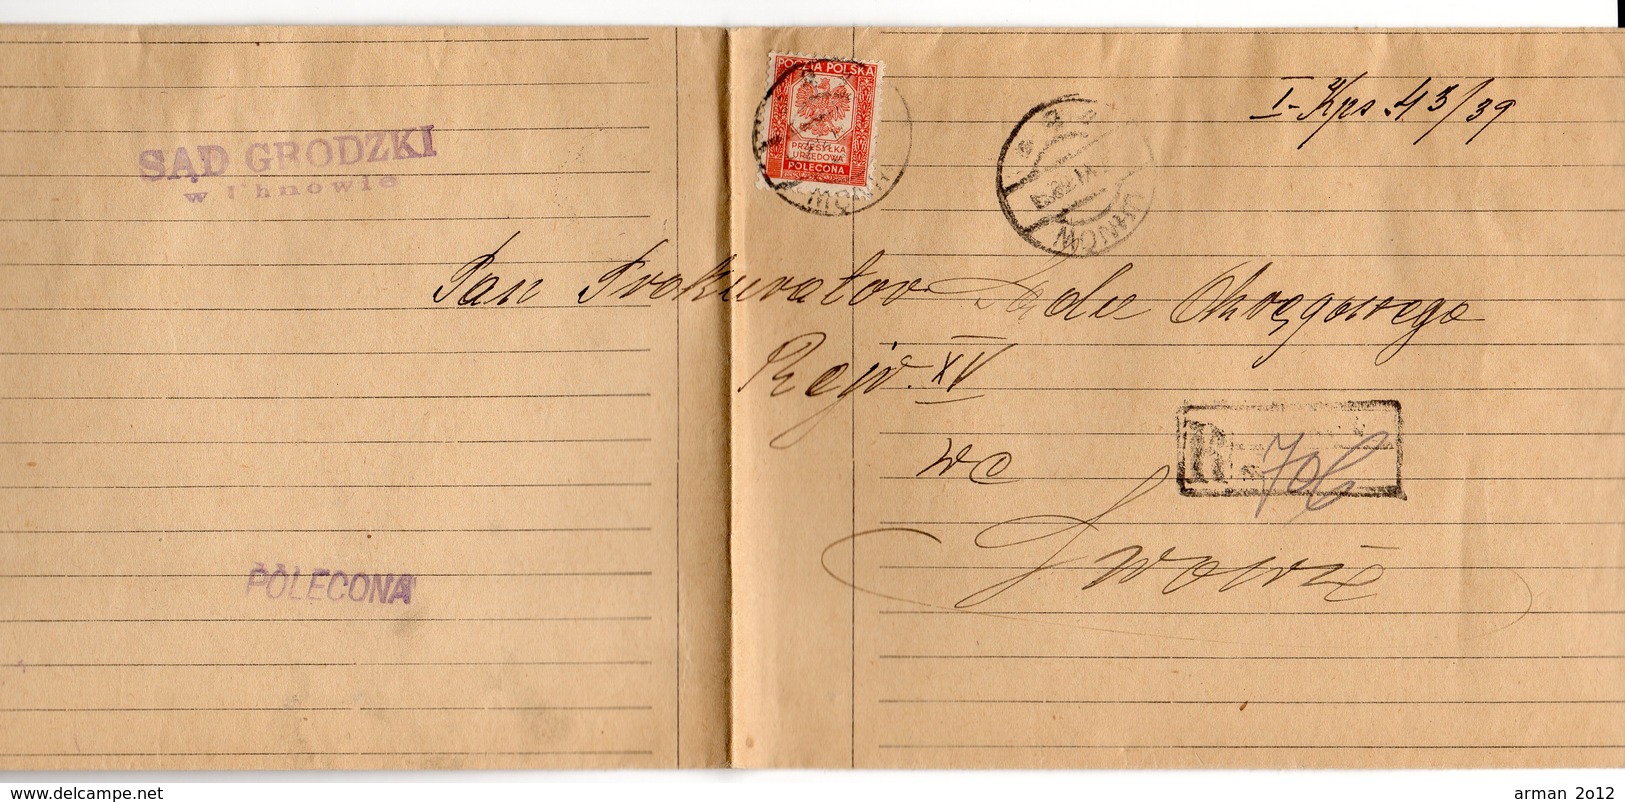 I. Kps. 43/39
SĄD GRODZKI
w Uhnowie
POCZTA POLSKA
PRZESYŁKA
URZĘDOWA
POLECONA
UHNÓW
UHNÓW
Pan Prokurator Sądu Okręgowego
Rejo. XV
we
Lwowie
R
706
POLECONA
www.delcampe.net
arman 2012